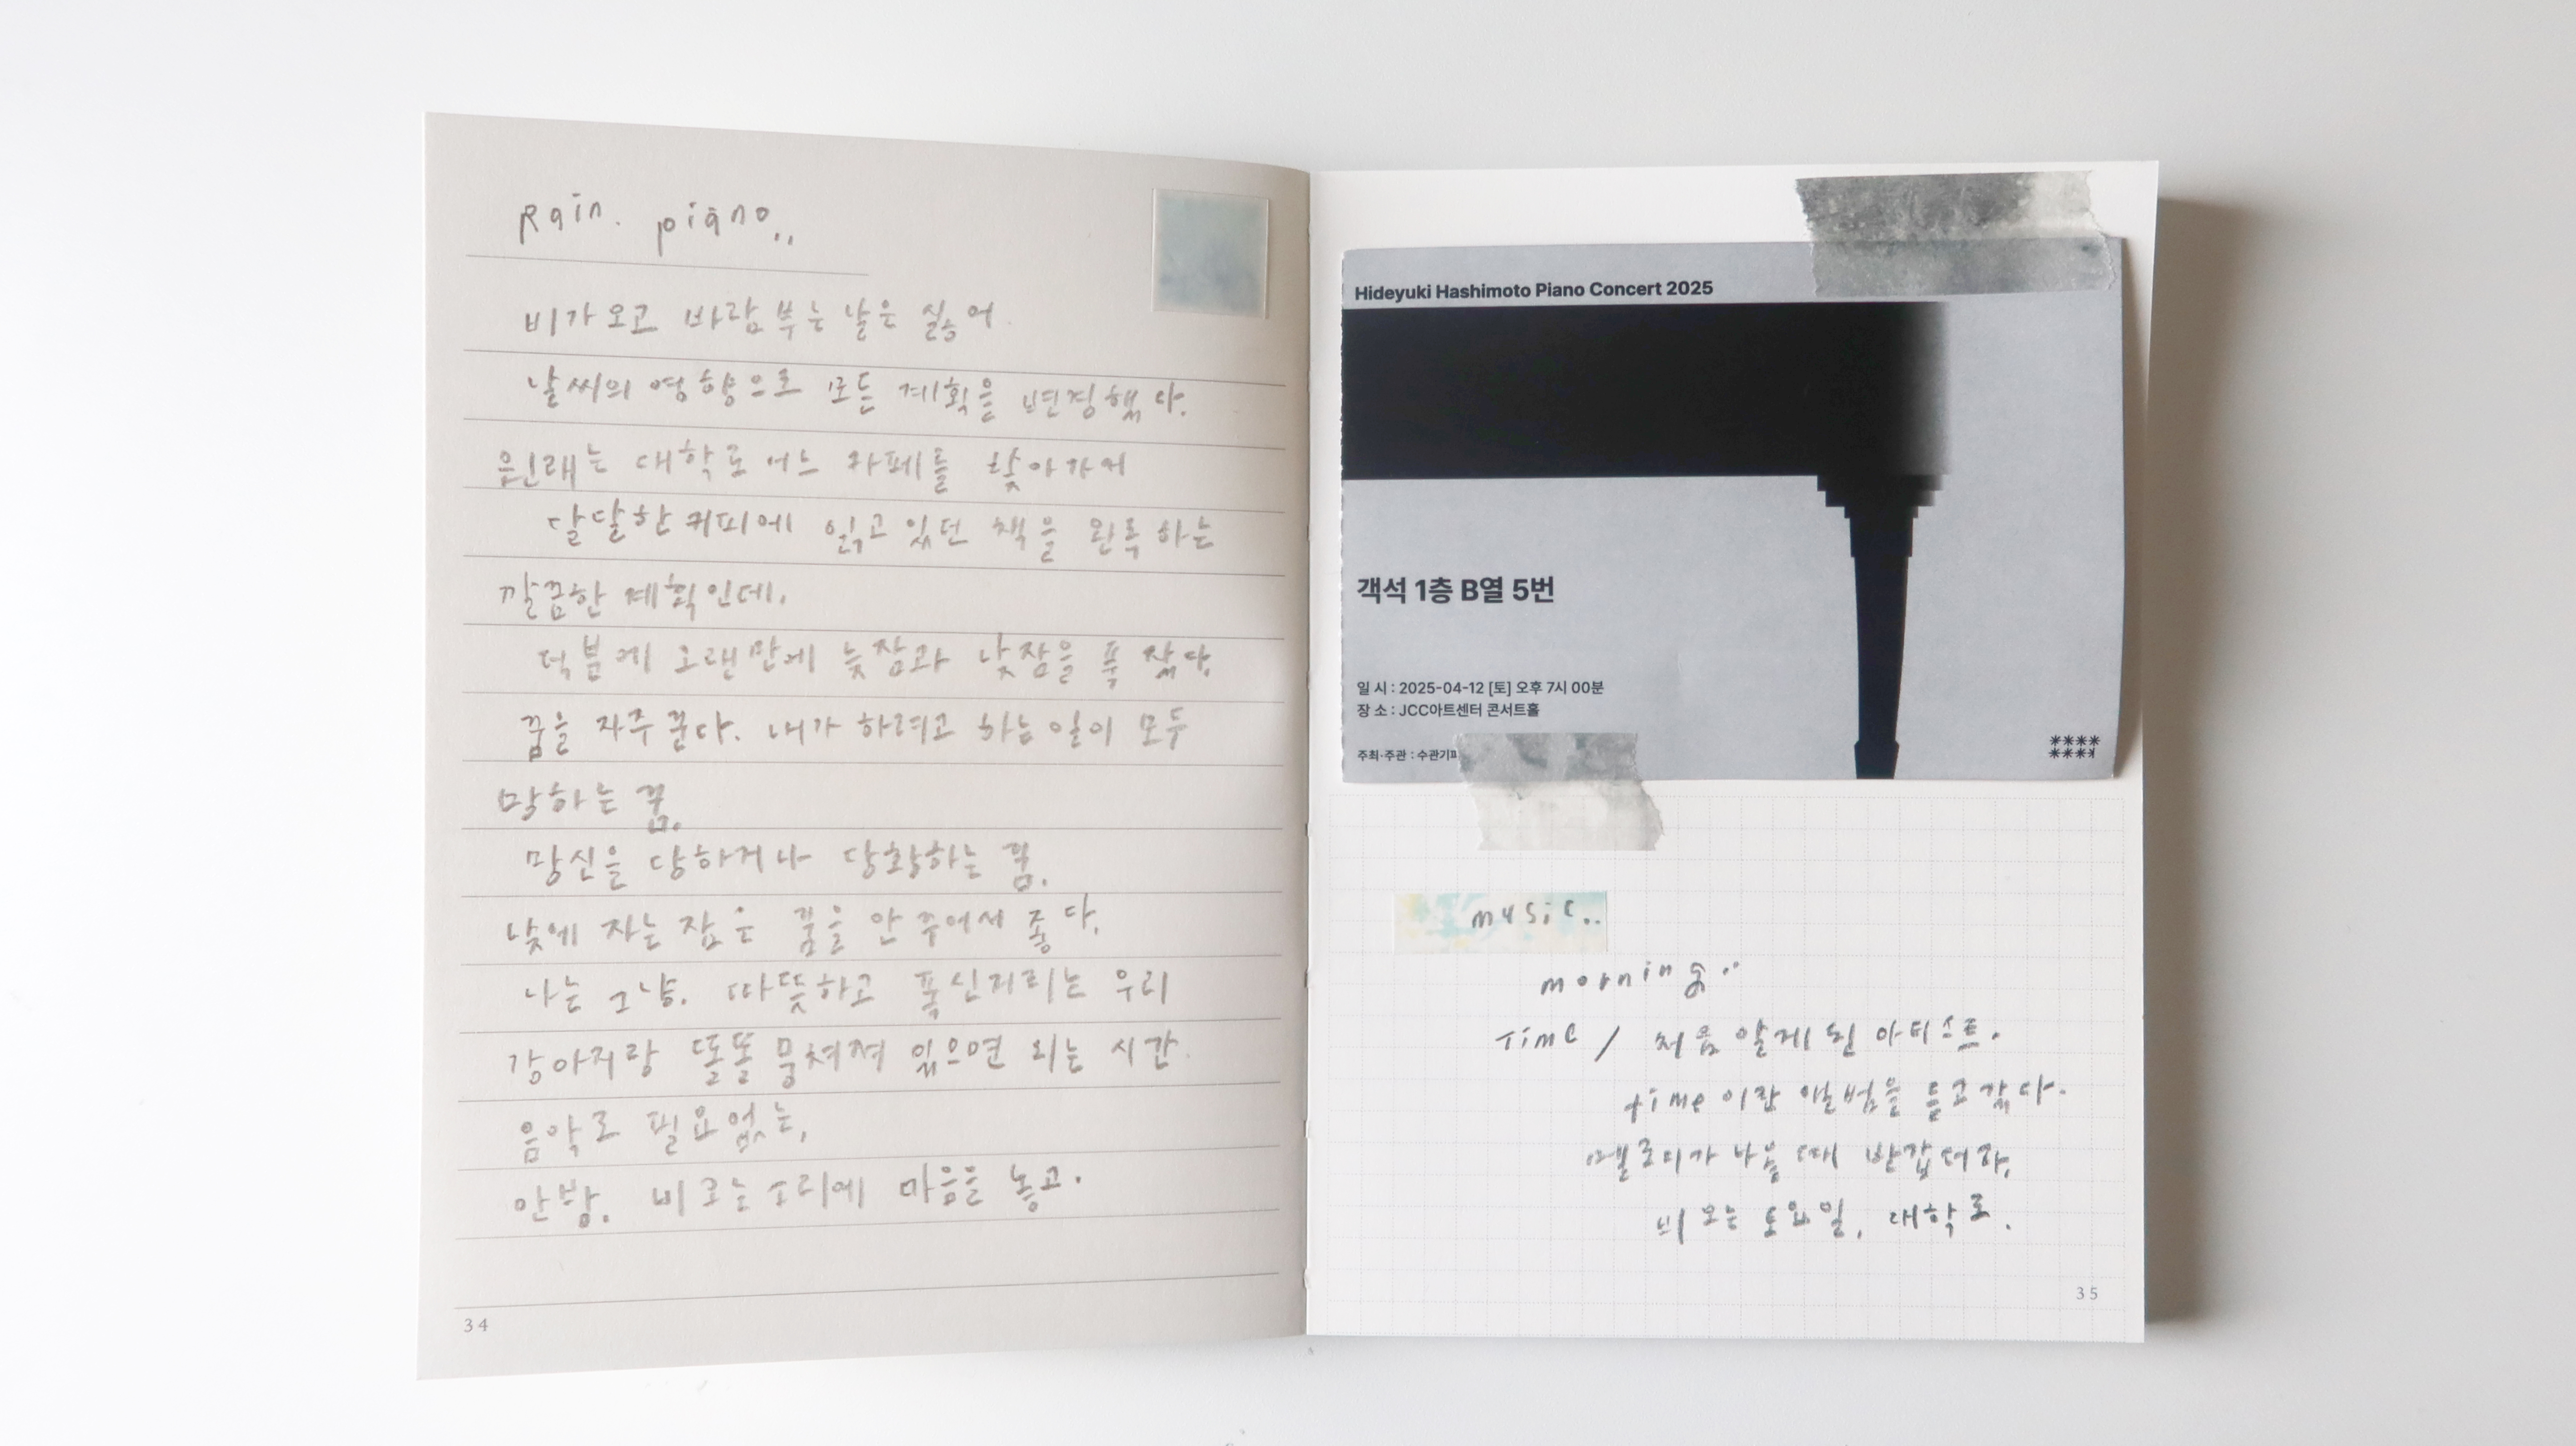 Rain. piano..
비가오고 바람부는 날은 싫어.
날씨의 영향으로 모든 계획을 변경했다.
원래는 대학로 어느 카페를 찾아가서
달달한 커피에 읽고있던 책을 완독하는
깔끔한 계획인데.
덕분에 오랜만에 늦잠과 낮잠을 푹 잤다.
꿈을 자주 꾼다. 내가 하려고 하는일이 모두
망하는 꿈.
망신을 당하거나 당황하는 꿈.
낮에 자는 잠은 꿈을 안 꾸어서 좋다.
나는 그냥. 따뜻하고 푹신거리는 우리
강아지랑 똘똘 뭉쳐져 있으면 되는 시간.
음악도 필요없는,
안방. 비오는소리에 마음을 놓고.
34
Hideyuki Hashimoto Piano Concert 2025
객석 1층 B열 5번
일 시 : 2025-04-12 [토] 오후 7시 00분
장 소 : JCC아트센터 콘서트홀
주최·주관 : 수관기피
music..
morning..
Time / 처음 알게 된 아티스트.
time 이란 앨범을 듣고갔다.
멜로디가 나올 때 반갑더라.
비 오는 토요일, 대학로.
35